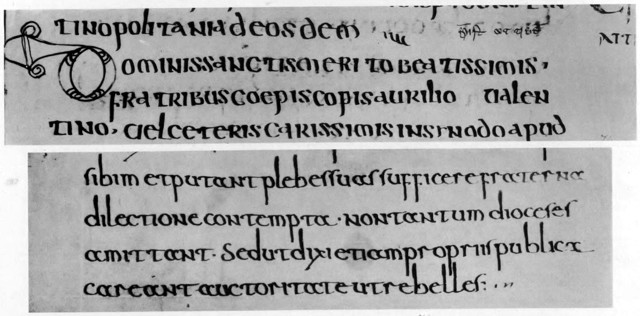 TINOPOLITANA DE OSDEM
DOMINIS SANCTIS MERITO BEATISSIMIS·
FRATRIBUS COEPISCOPIS AURILIO UALEN
TINO· UEL CETERIS CARISSIMIS IN SINODO APUD
sibimet putant plebes suas sufficere fraterna
dilectione contempta· non tantum dioceses
amittant· Sed ut dixi etiam propriis publica
careant auctoritate ut rebelles: